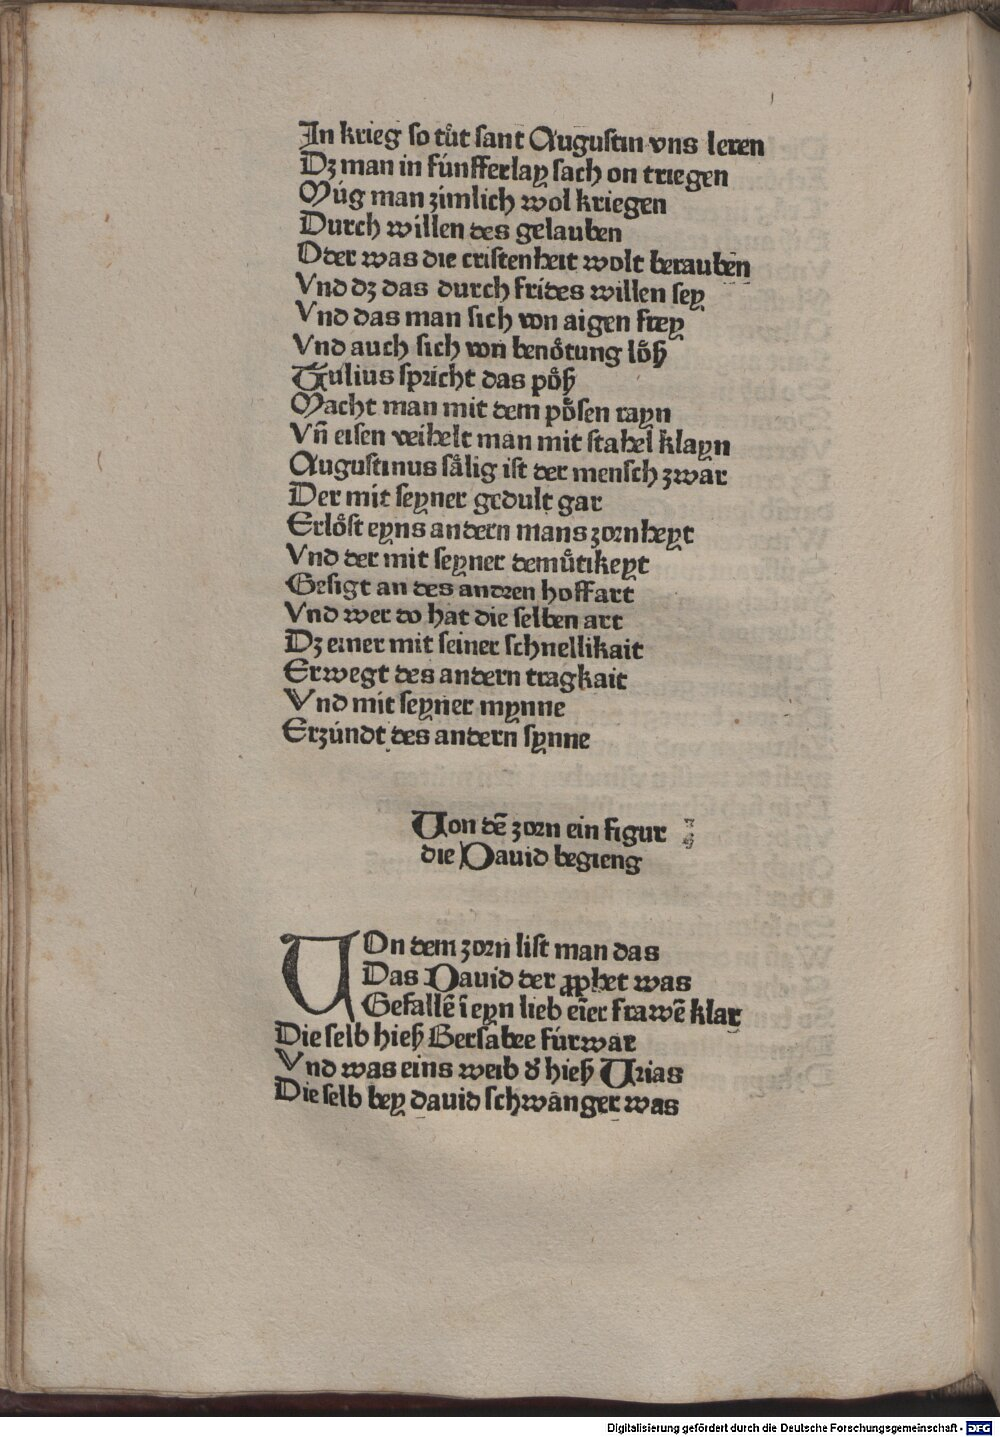 In krieg so tuͦt sant Augustin vns leren
Dz man in fúnfferlay sach on triegen
Múg man zimlich wol kriegen
Durch willen des gelauben
Oder was die cristenheit wolt berauben
Vnd dz das durch frides willen sey
Vnd das man sich von aigen frey
Vnd auch sich von benoͤtung loͤß
Tulius spricht das poͤß
Macht man mit dem poͤsen rayn
Vñ eisen veihelt man mit stahel klayn
Augustinus saͤlig ist der mensch zwar
Der mit seyner gedult gar
Erloͤst eyns andern mans zornheyt
Vnd der mit seyner demuͤtikeyt
Gesigt an des andren hoffart
Vnd wer do hat die selben art
Dz einer mit seiner schnellikait
Erwegt des andern tragkait
Vnd mit seyner mynne
Erzúndt des andern synne
Von dē zorn ein figur
die Dauid begieng
VOn dem zorn list man das
Das Dauid der ꝓphet was
Gefallē ī eyn lieb eīer frawē klar
Die selb hieß Bersabee fúrwar
Vnd was eins weib d̛ hieß Vrias
Die selb bey dauid schwanger was
Digitalisierung gefördert durch die Deutsche Forschungsgemeinschaft - DFG